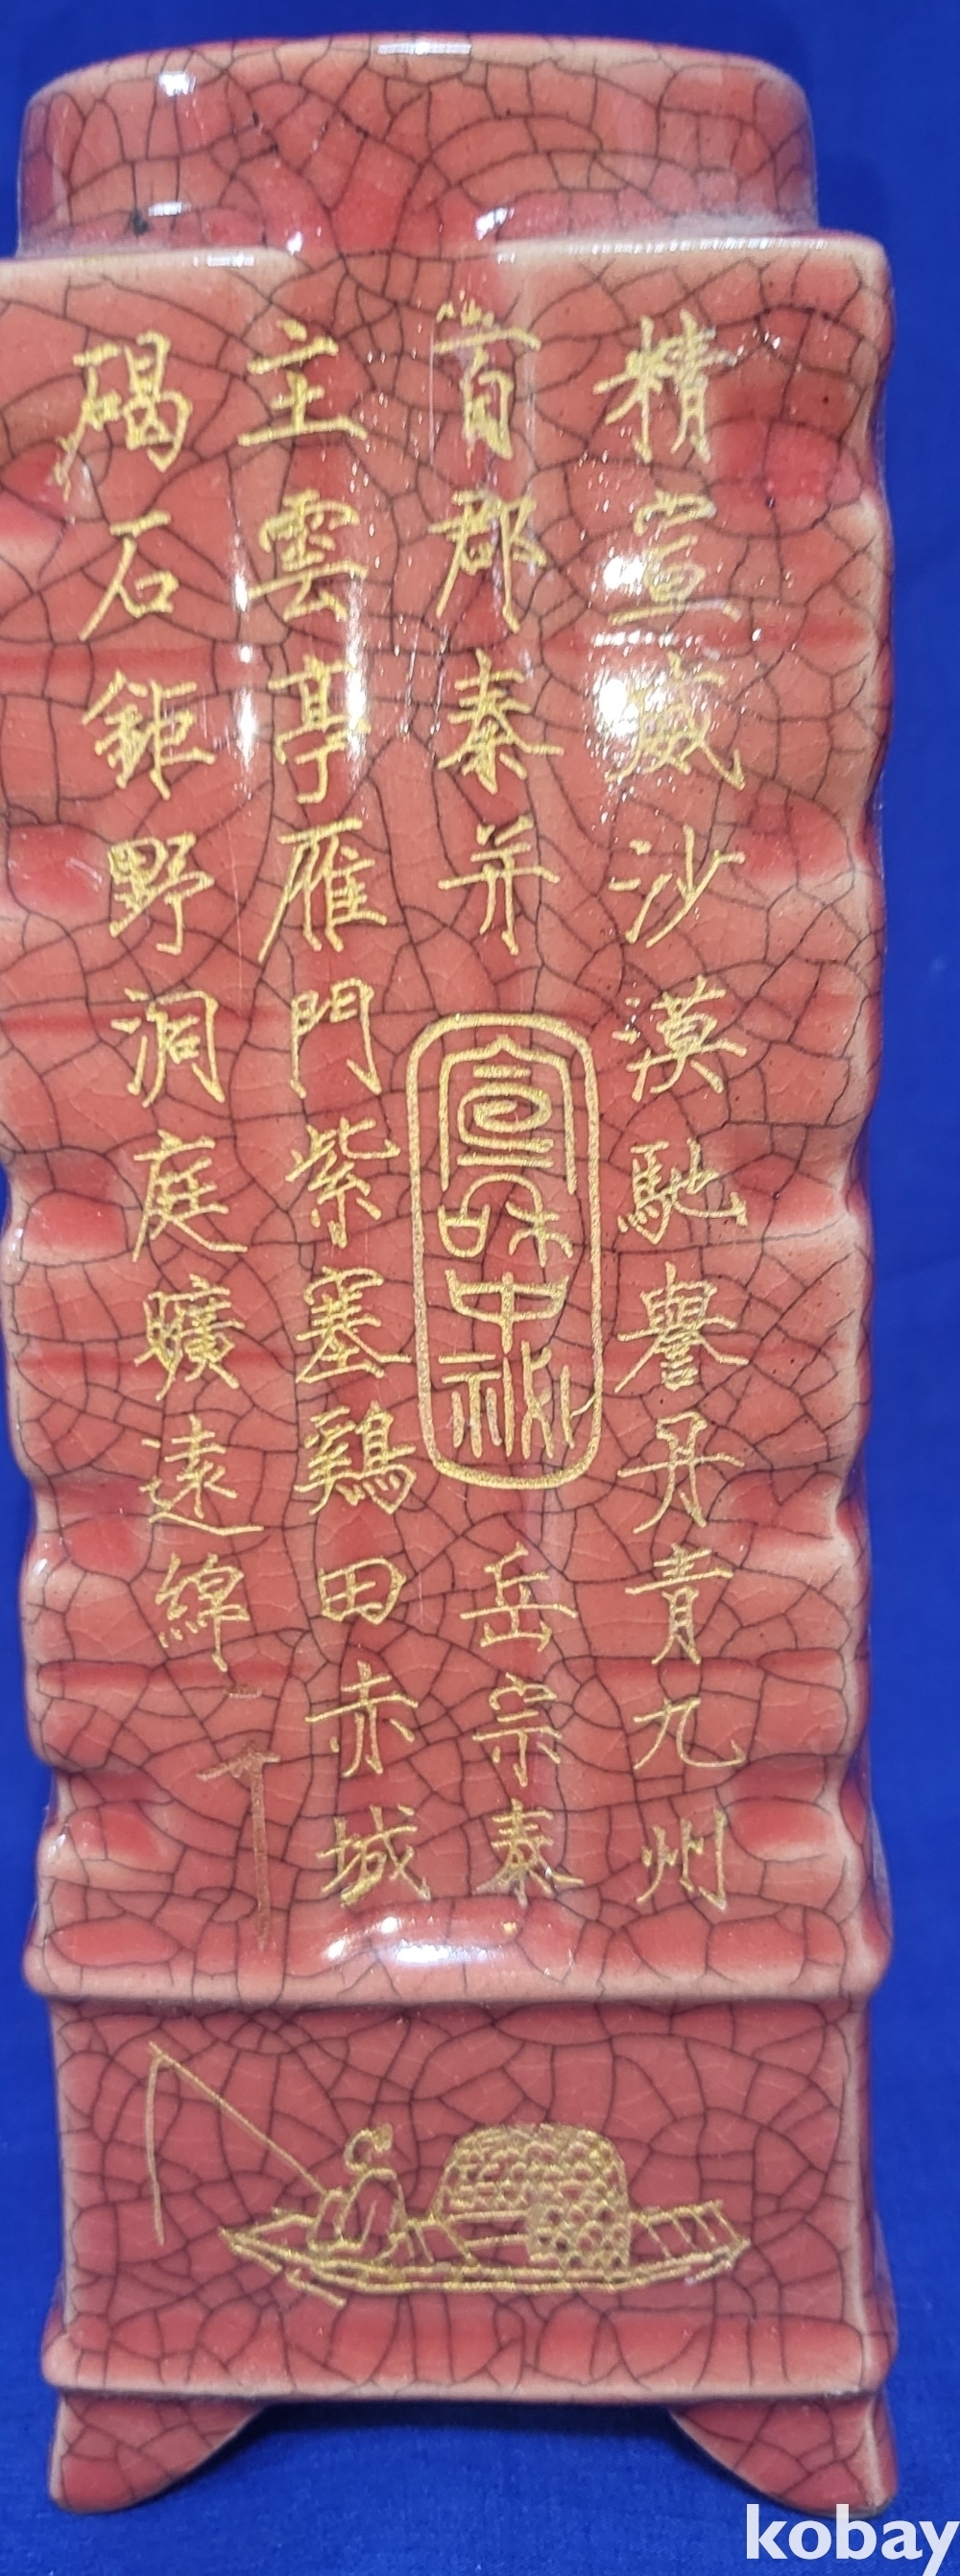 精宣威沙漠馳譽丹青九州
百郡秦并岳宗泰
主雲亭雁門紫塞鷄田赤城
碣石鉅野洞庭曠遠綿
kobay